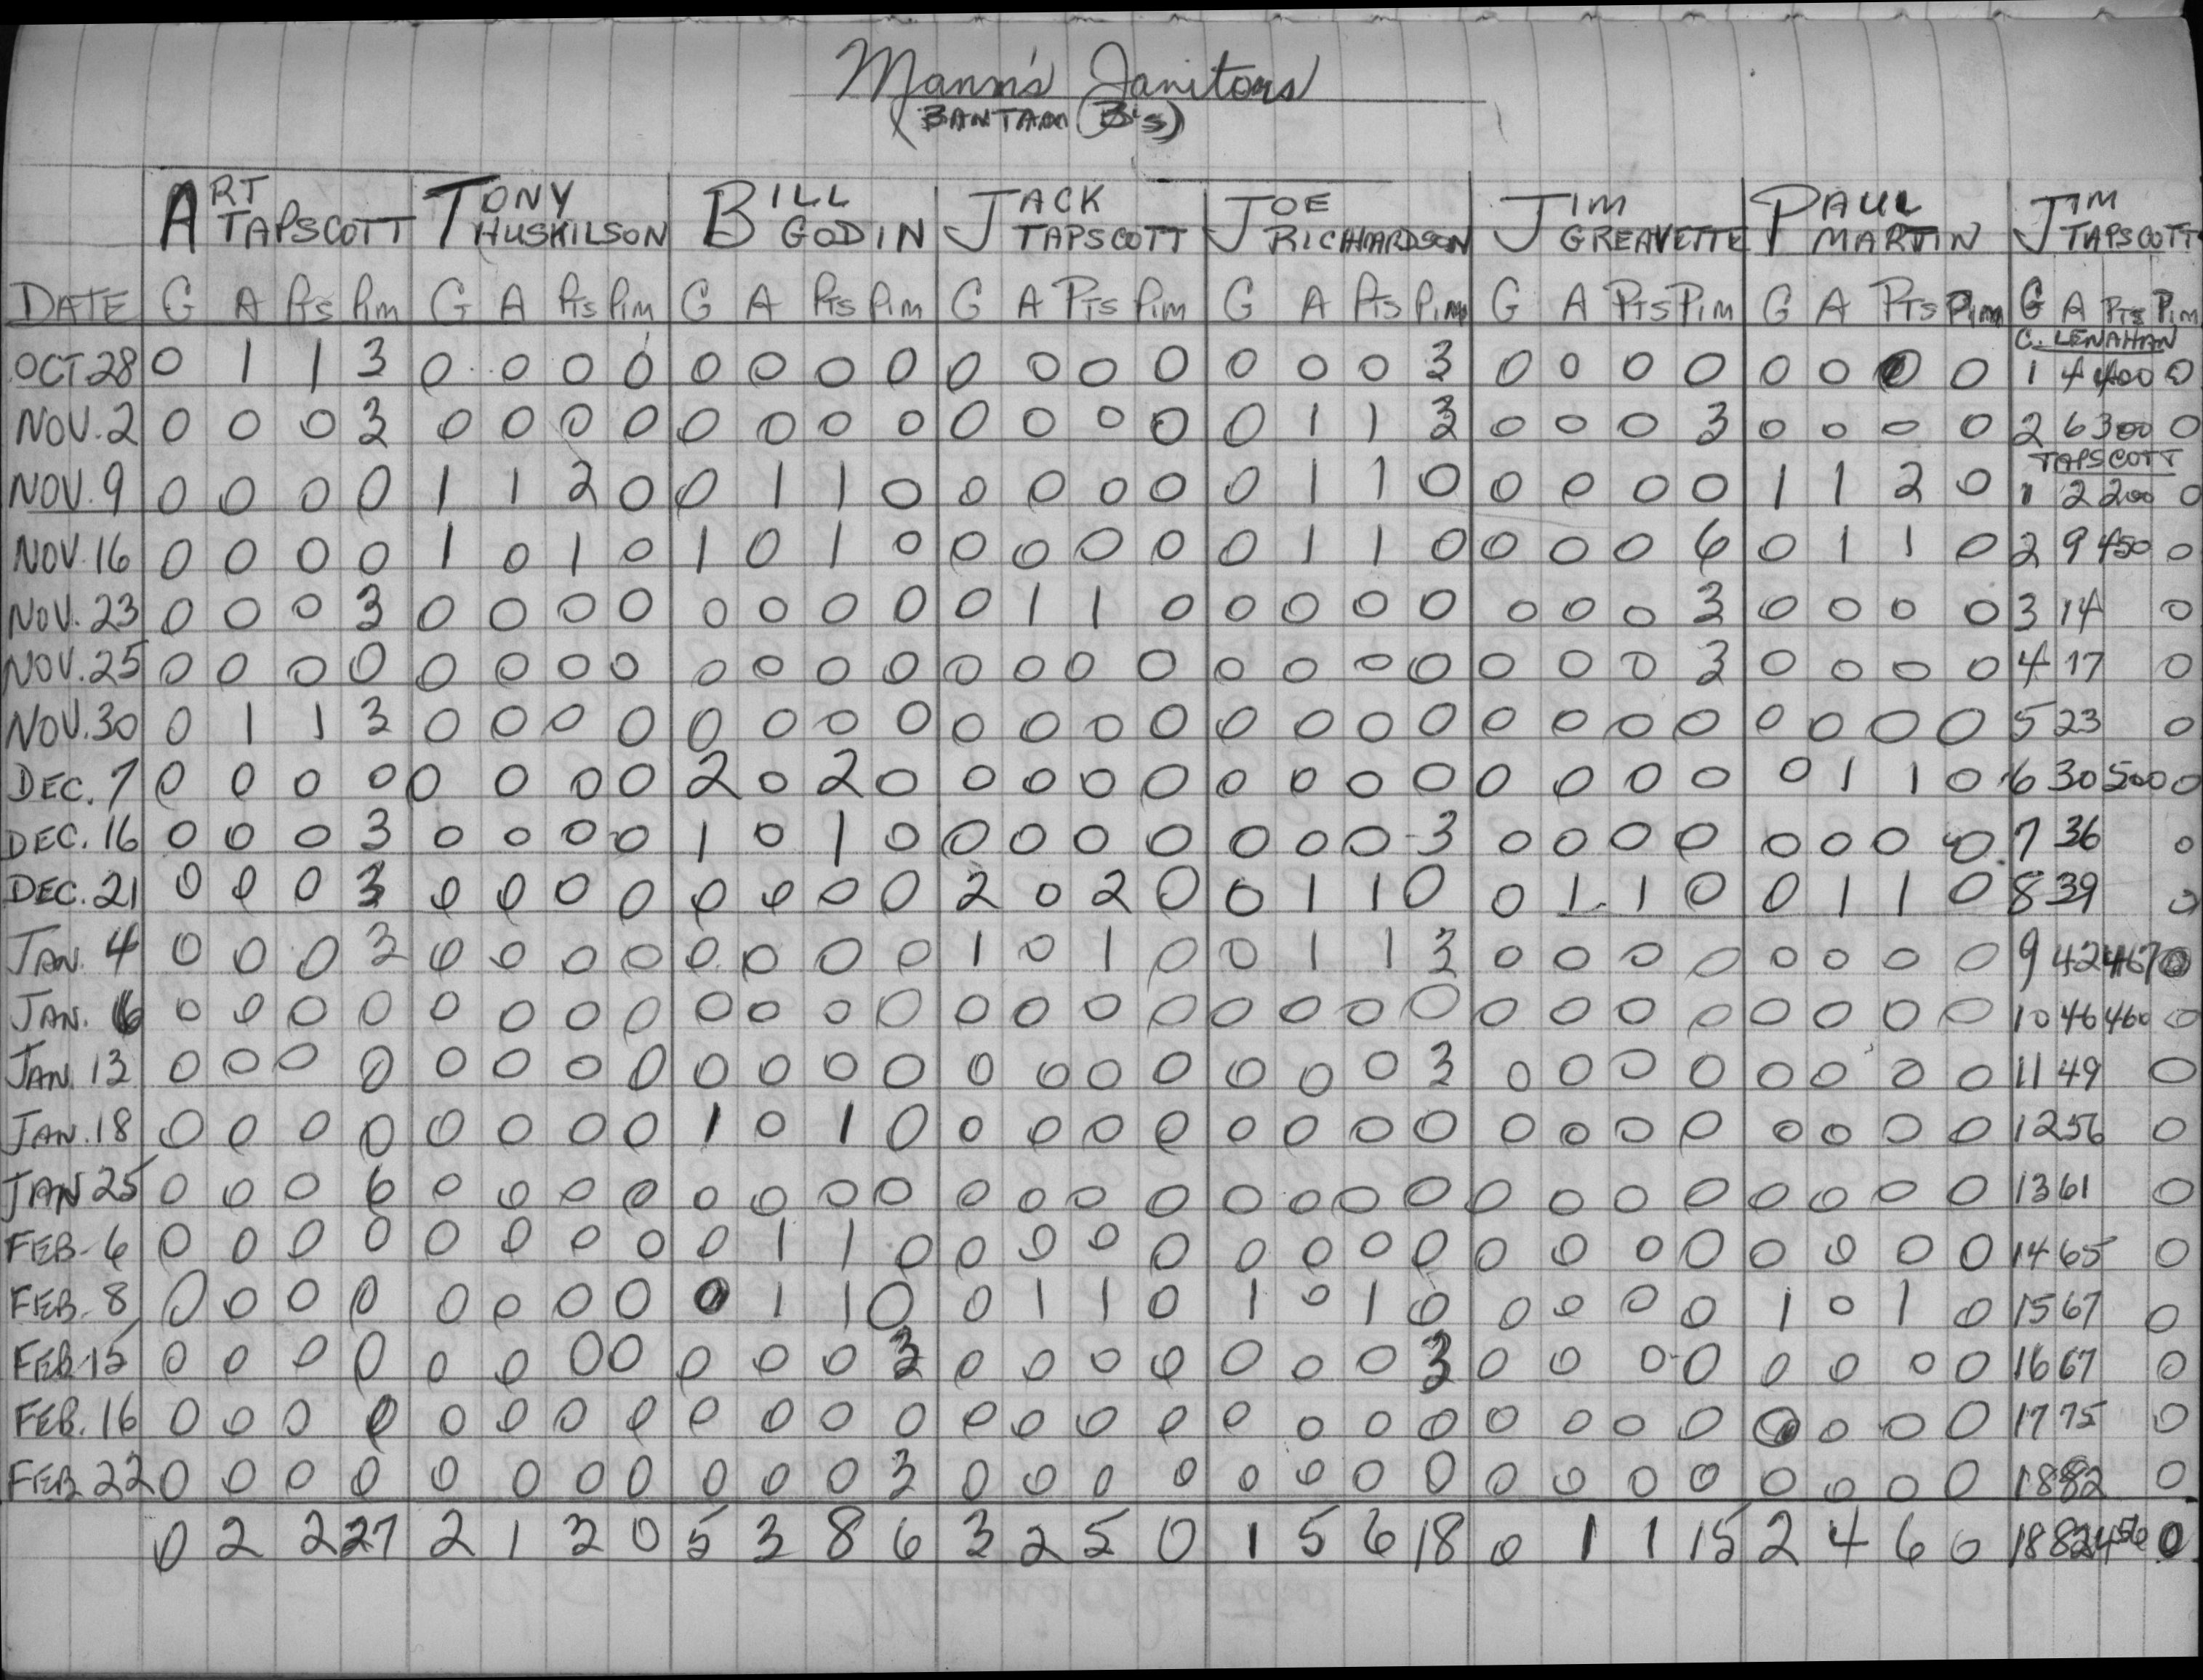 Mann's Janitors
(BANTAM B's)
ART TAPSCOTT TONY HUSKILSON BILL GODIN JACK TAPSCOTT JOE RICHARDSON JIM GREAVETTE PAUL MARTIN JIM TAPSCOTT
DATE G A Pts Pim G A Pts Pim G A Pts Pim G A Pts Pim G A Pts Pim G A Pts Pim G A Pts Pim G A Pts Pim
C. LENAHAN
OCT 28 0 1 1 3 0 0 0 0 0 0 0 0 0 0 0 0 0 0 0 3 0 0 0 0 0 0 0 0 1 4 400 0
NOV. 2 0 0 0 3 0 0 0 0 0 0 0 0 0 0 0 0 0 1 1 3 0 0 0 3 0 0 0 0 2 6 300 0
TAPSCOTT
NOV. 9 0 0 0 0 1 1 2 0 0 1 1 0 0 0 0 0 0 1 1 0 0 0 0 0 1 1 2 0 1 2 200 0
NOV. 16 0 0 0 0 1 0 1 0 1 0 1 0 0 0 0 0 0 1 1 0 0 0 0 6 0 1 1 0 2 9 450 0
NOV. 23 0 0 0 3 0 0 0 0 0 0 0 0 0 1 1 0 0 0 0 0 0 0 0 3 0 0 0 0 3 14 0
NOV. 25 0 0 0 0 0 0 0 0 0 0 0 0 0 0 0 0 0 0 0 0 0 0 0 3 0 0 0 0 4 17 0
NOV. 30 0 1 1 3 0 0 0 0 0 0 0 0 0 0 0 0 0 0 0 0 0 0 0 0 0 0 0 0 5 23 0
DEC. 7 0 0 0 0 0 0 0 0 2 0 2 0 0 0 0 0 0 0 0 0 0 0 0 0 0 1 1 0 6 30 500 0
DEC. 16 0 0 0 3 0 0 0 0 1 0 1 0 0 0 0 0 0 0 0 3 0 0 0 0 0 0 0 0 7 36 0
DEC. 21 0 0 0 3 0 0 0 0 0 0 0 0 2 0 2 0 0 1 1 0 0 1 1 0 0 1 1 0 8 39 0
JAN. 4 0 0 0 3 0 0 0 0 0 0 0 0 1 0 1 0 0 1 1 3 0 0 0 0 0 0 0 0 9 42 467 0
JAN. 6 0 0 0 0 0 0 0 0 0 0 0 0 0 0 0 0 0 0 0 0 0 0 0 0 0 0 0 0 10 46 460 0
JAN. 13 0 0 0 0 0 0 0 0 0 0 0 0 0 0 0 0 0 0 0 3 0 0 0 0 0 0 0 0 11 49 0
JAN. 18 0 0 0 0 0 0 0 0 1 0 1 0 0 0 0 0 0 0 0 0 0 0 0 0 0 0 0 0 12 56 0
JAN 25 0 0 0 6 0 0 0 0 0 0 0 0 0 0 0 0 0 0 0 0 0 0 0 0 0 0 0 0 13 61 0
FEB- 6 0 0 0 0 0 0 0 0 0 1 1 0 0 0 0 0 0 0 0 0 0 0 0 0 0 0 0 0 14 65 0
FEB- 8 0 0 0 0 0 0 0 0 0 1 1 0 0 1 1 0 1 0 1 0 0 0 0 0 1 0 1 0 15 67 0
FEB. 15 0 0 0 0 0 0 0 0 0 0 0 3 0 0 0 0 0 0 0 3 0 0 0 0 0 0 0 0 16 67 0
FEB. 16 0 0 0 0 0 0 0 0 0 0 0 0 0 0 0 0 0 0 0 0 0 0 0 0 0 0 0 0 17 75 0
FEB. 22 0 0 0 0 0 0 0 0 0 0 0 3 0 0 0 0 0 0 0 0 0 0 0 0 0 0 0 0 18 82 0
0 2 2 27 2 1 3 0 5 3 8 6 3 2 5 0 1 5 6 18 0 1 1 15 2 4 6 0 18 82 456 0